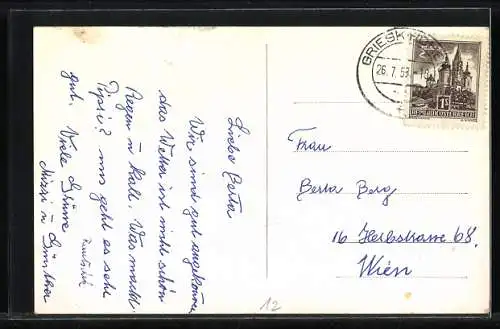 Liebe Berta
Wir sind gut angekommen
das Wetter ist nicht schön
Regen u Kalt. Was macht
Pipsi? uns geht es sehr
gut. Viele Grüsse
Mizzi u Günther
GRIESKIR
26.7.59
1S
REPUBLIK ÖSTERREICH
Frau
Berta Berg
16 Herbststrasse 68.
Wien
12